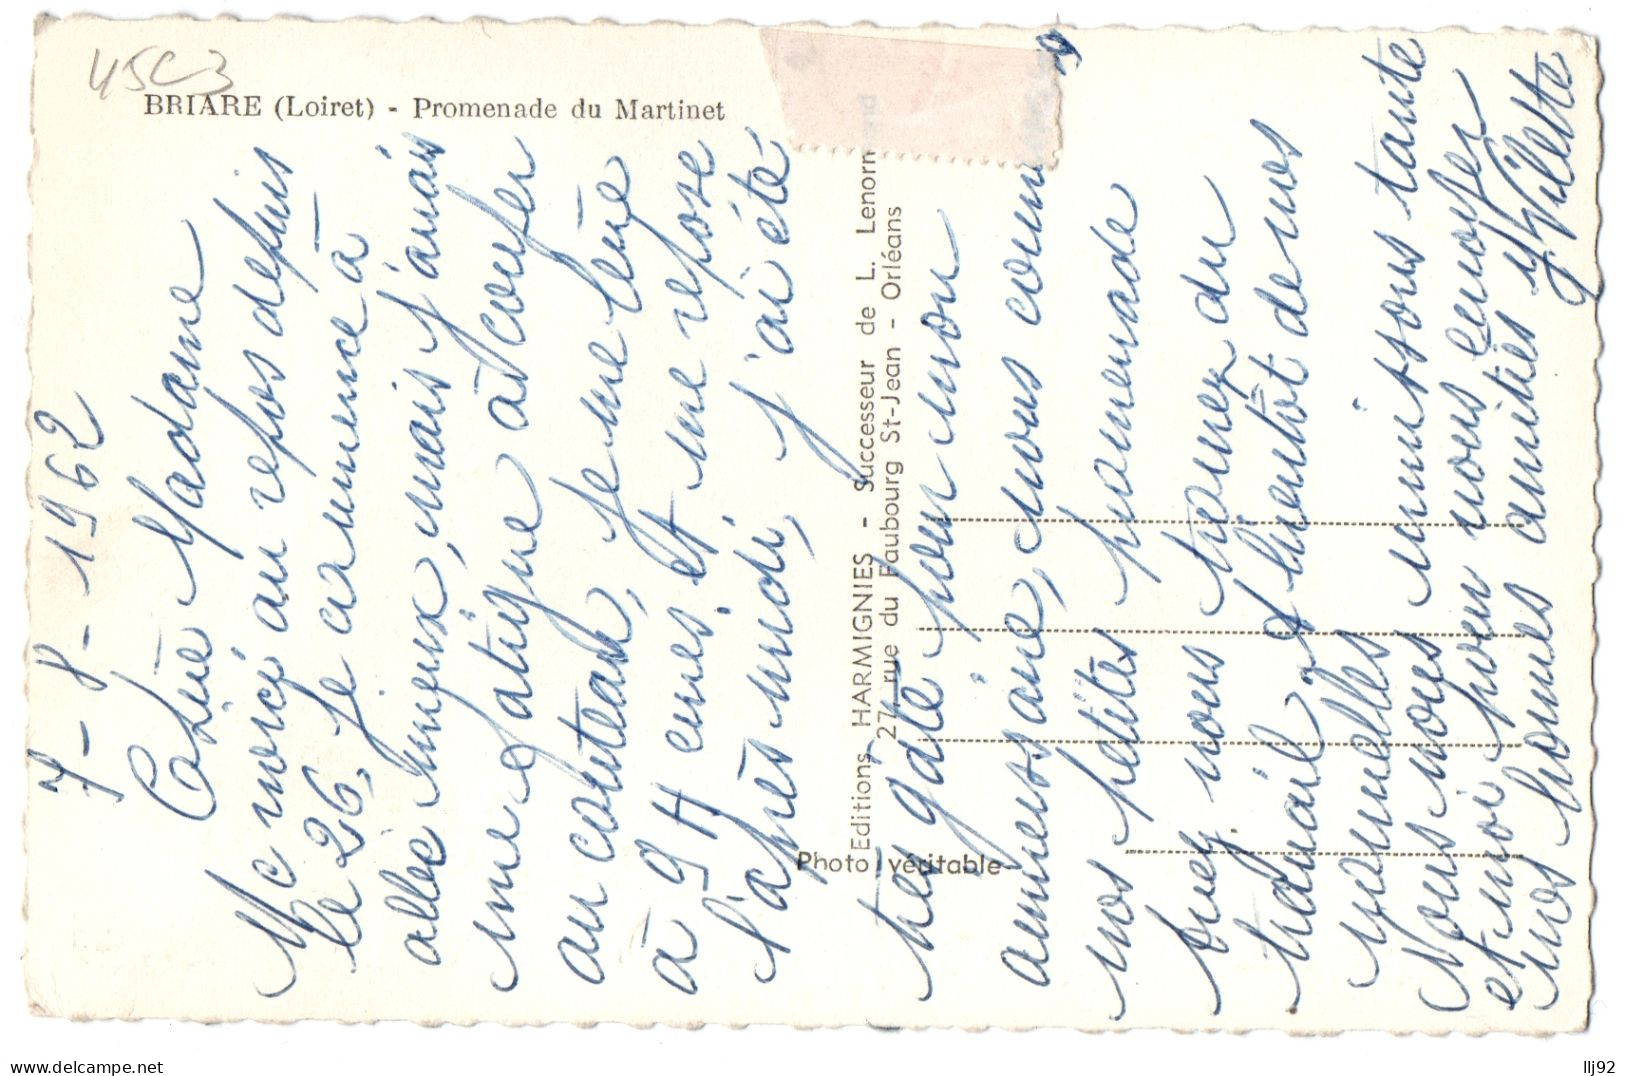 45C3
BRIARE (Loiret) - Promenade du Martinet
7-8-1962
Chère Madame
Me voici au repos depuis
le 26, je commence à
aller mieux, mais j'avais
une fatigue à couper
au couteau, je me lève
à 9 H envi. et me repose
l'après midi, j'ai été
très gâté pour mon
anniversaire, nous comm
nos petites promenade
Editions HARMIGNIES - Successeur de L. Lenorm and
27, rue du Faubourg St-Jean - Orléans
Photo véritable
nous
travail, à bientôt de vos
nouvelles
Nous nous unissons tante
et moi pour vous envoyer
nos bonnes amitiés
Yvilette
delcampe.net
llj92